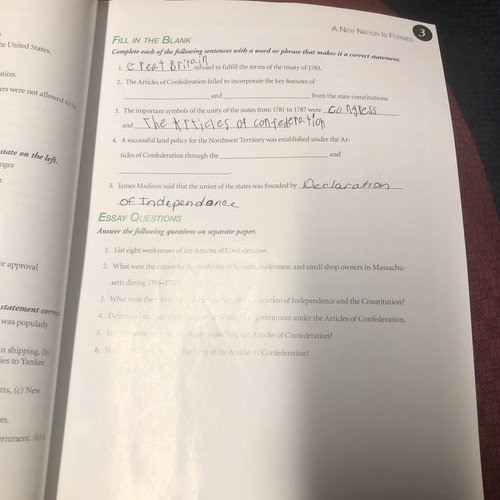 A NEW NATION IS FORMED 3
FILL IN THE BLANK
Complete each of the following sentences with a word or phrase that makes it a correct statement.
1. Great Britain refused to fulfill the terms of the treaty of 1783.
2. The Articles of Confederation failed to incorporate the key features of
and from the state constitutions.
3. The important symbols of the unity of the states from 1781 to 1787 were Congress
and The Articles of confederation
4. A successful land policy for the Northwest Territory was established under the Ar-
ticles of Confederation through the and
5. James Madison said that the union of the states was founded by Declaration
of Independance
ESSAY QUESTIONS
Answer the following questions on separate paper.
1. List eight weaknesses of the Articles of Confederation.
2. What were the causes for the problems of farmers, tradesmen, and small shop owners in Massachu-
setts during 1784–
3. What were the of Independence and the Constitution?
4. government under the Articles of Confederation.
5. the Articles of Confederation?
6. of the Articles of Confederation?
he United States.
ation.
ers were not allowed to be
state on the left.
nges
or approval
statement correct
was popularly
n shipping, (b)
ies to Yankee
tts, (c) New
on.
ernment, (b) a